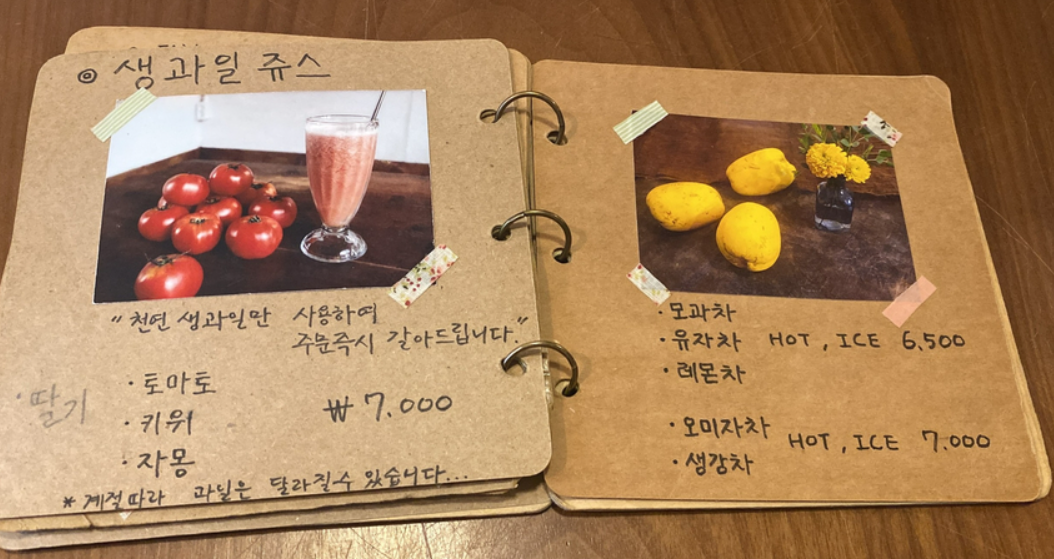 ◎ 생과일 쥬스
"천연 생과일만 사용하여
주문즉시 갈아드립니다."
· 토마토
· 딸기
· 키위
₩ 7.000
· 자몽
* 계절따라 과일은 달라질수 있습니다...
· 모과차
· 유자차 HOT, ICE 6.500
· 레몬차
· 오미자차
HOT, ICE 7.000
· 생강차